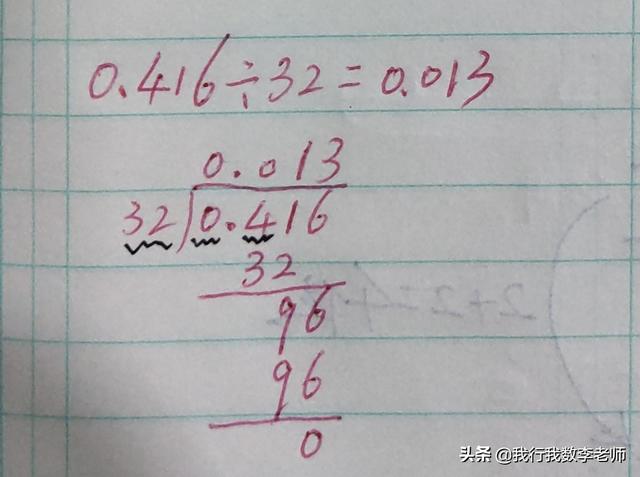 0.416÷32=0.013
0.013
32)0.416
32
96
96
0
2+2=4
头条 @我行我数李老师